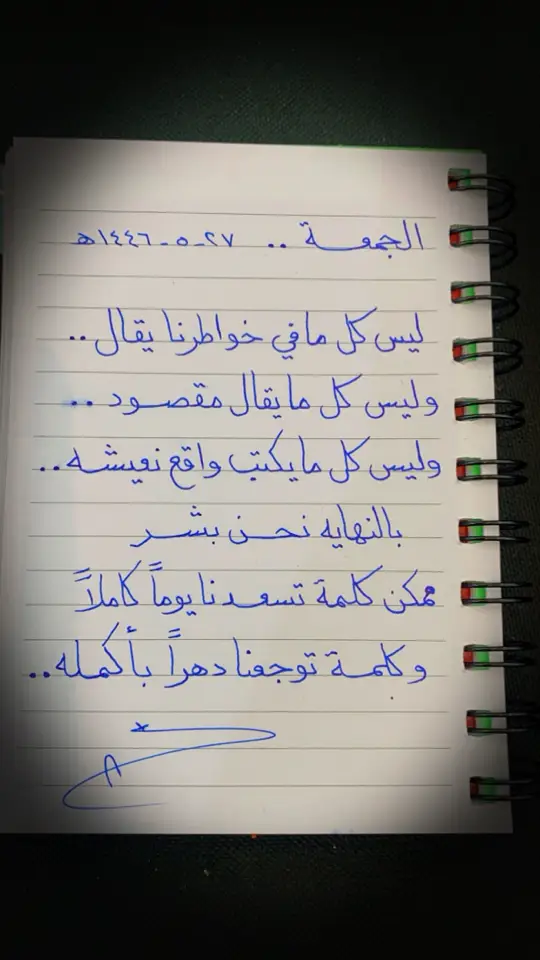 الجمعة .. ٢٧-٥-١٤٤٦هـ
ليس كل مافي خواطرنا يقال..
وليس كل مايقال مقصود ..
وليس كل مايكتب واقع نعيشه..
بالنهايه نحن بشر
ممكن كلمة تسعدنا يوماً كاملاً
وكلمة توجعنا دهراً بأكمله..